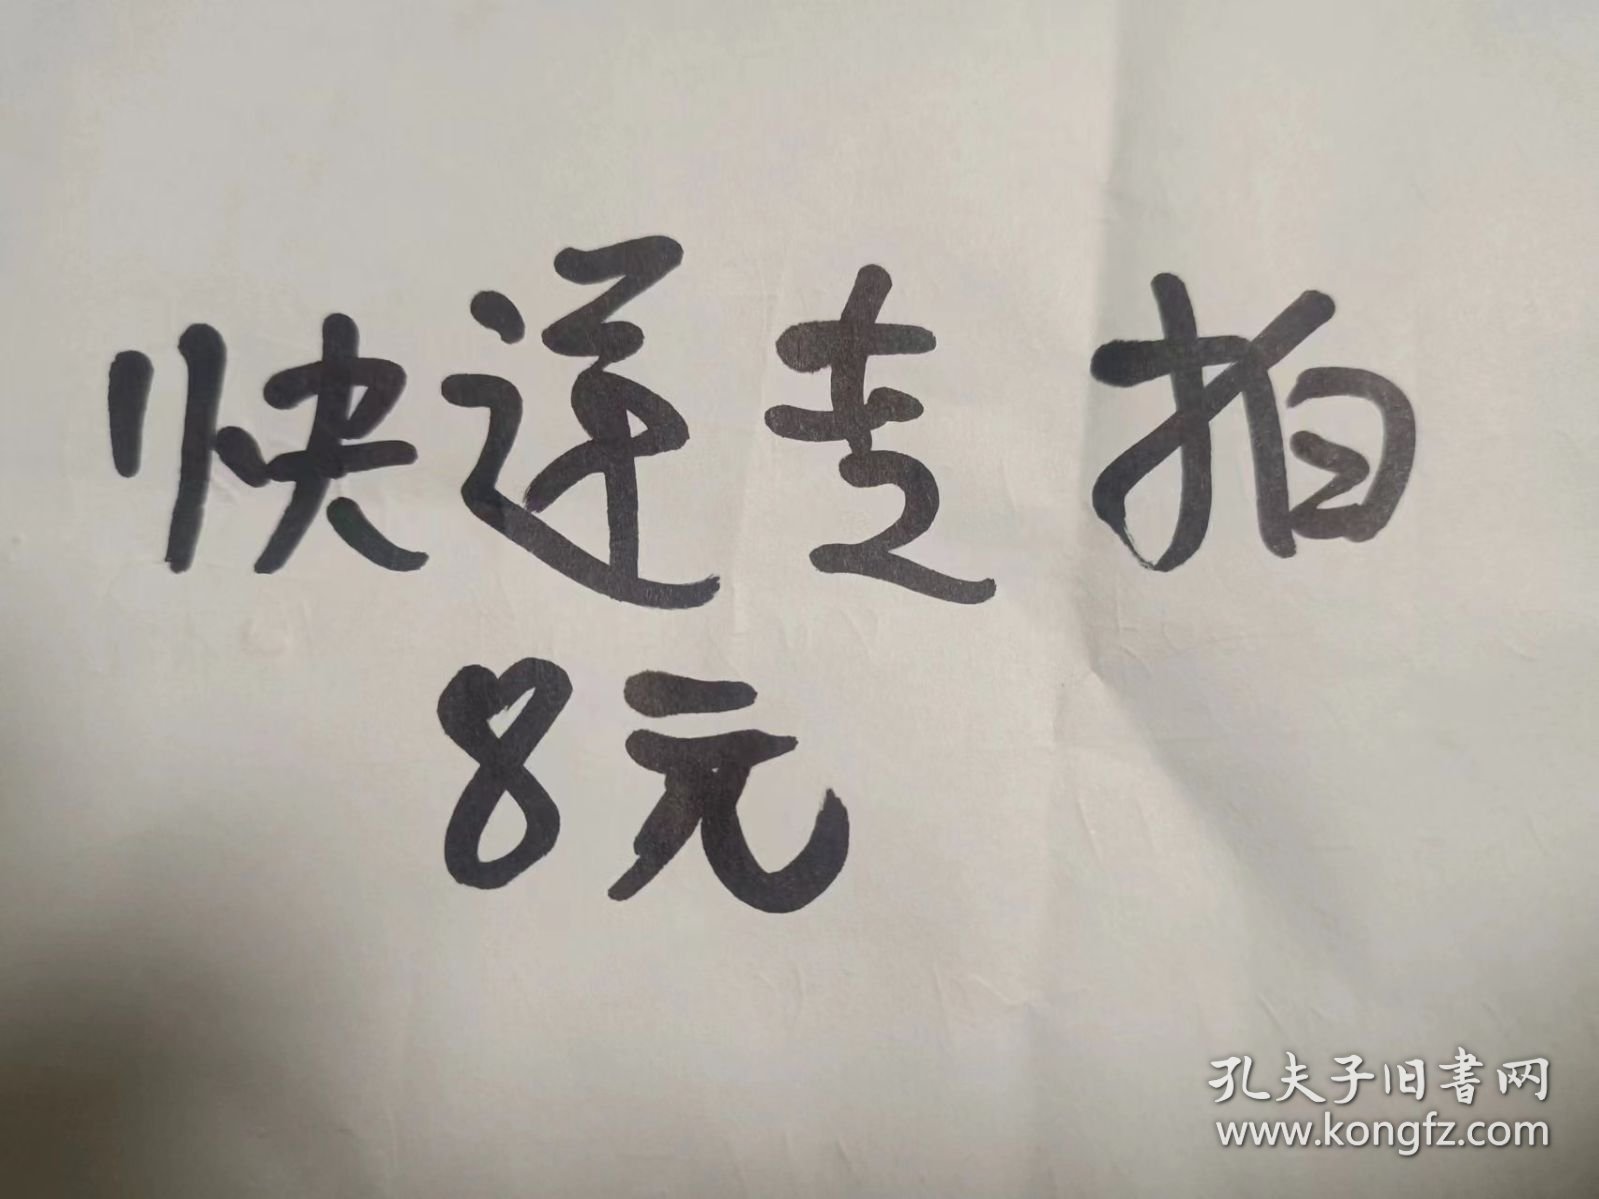 快递专拍
8元
孔夫子旧书网
www.kongfz.com